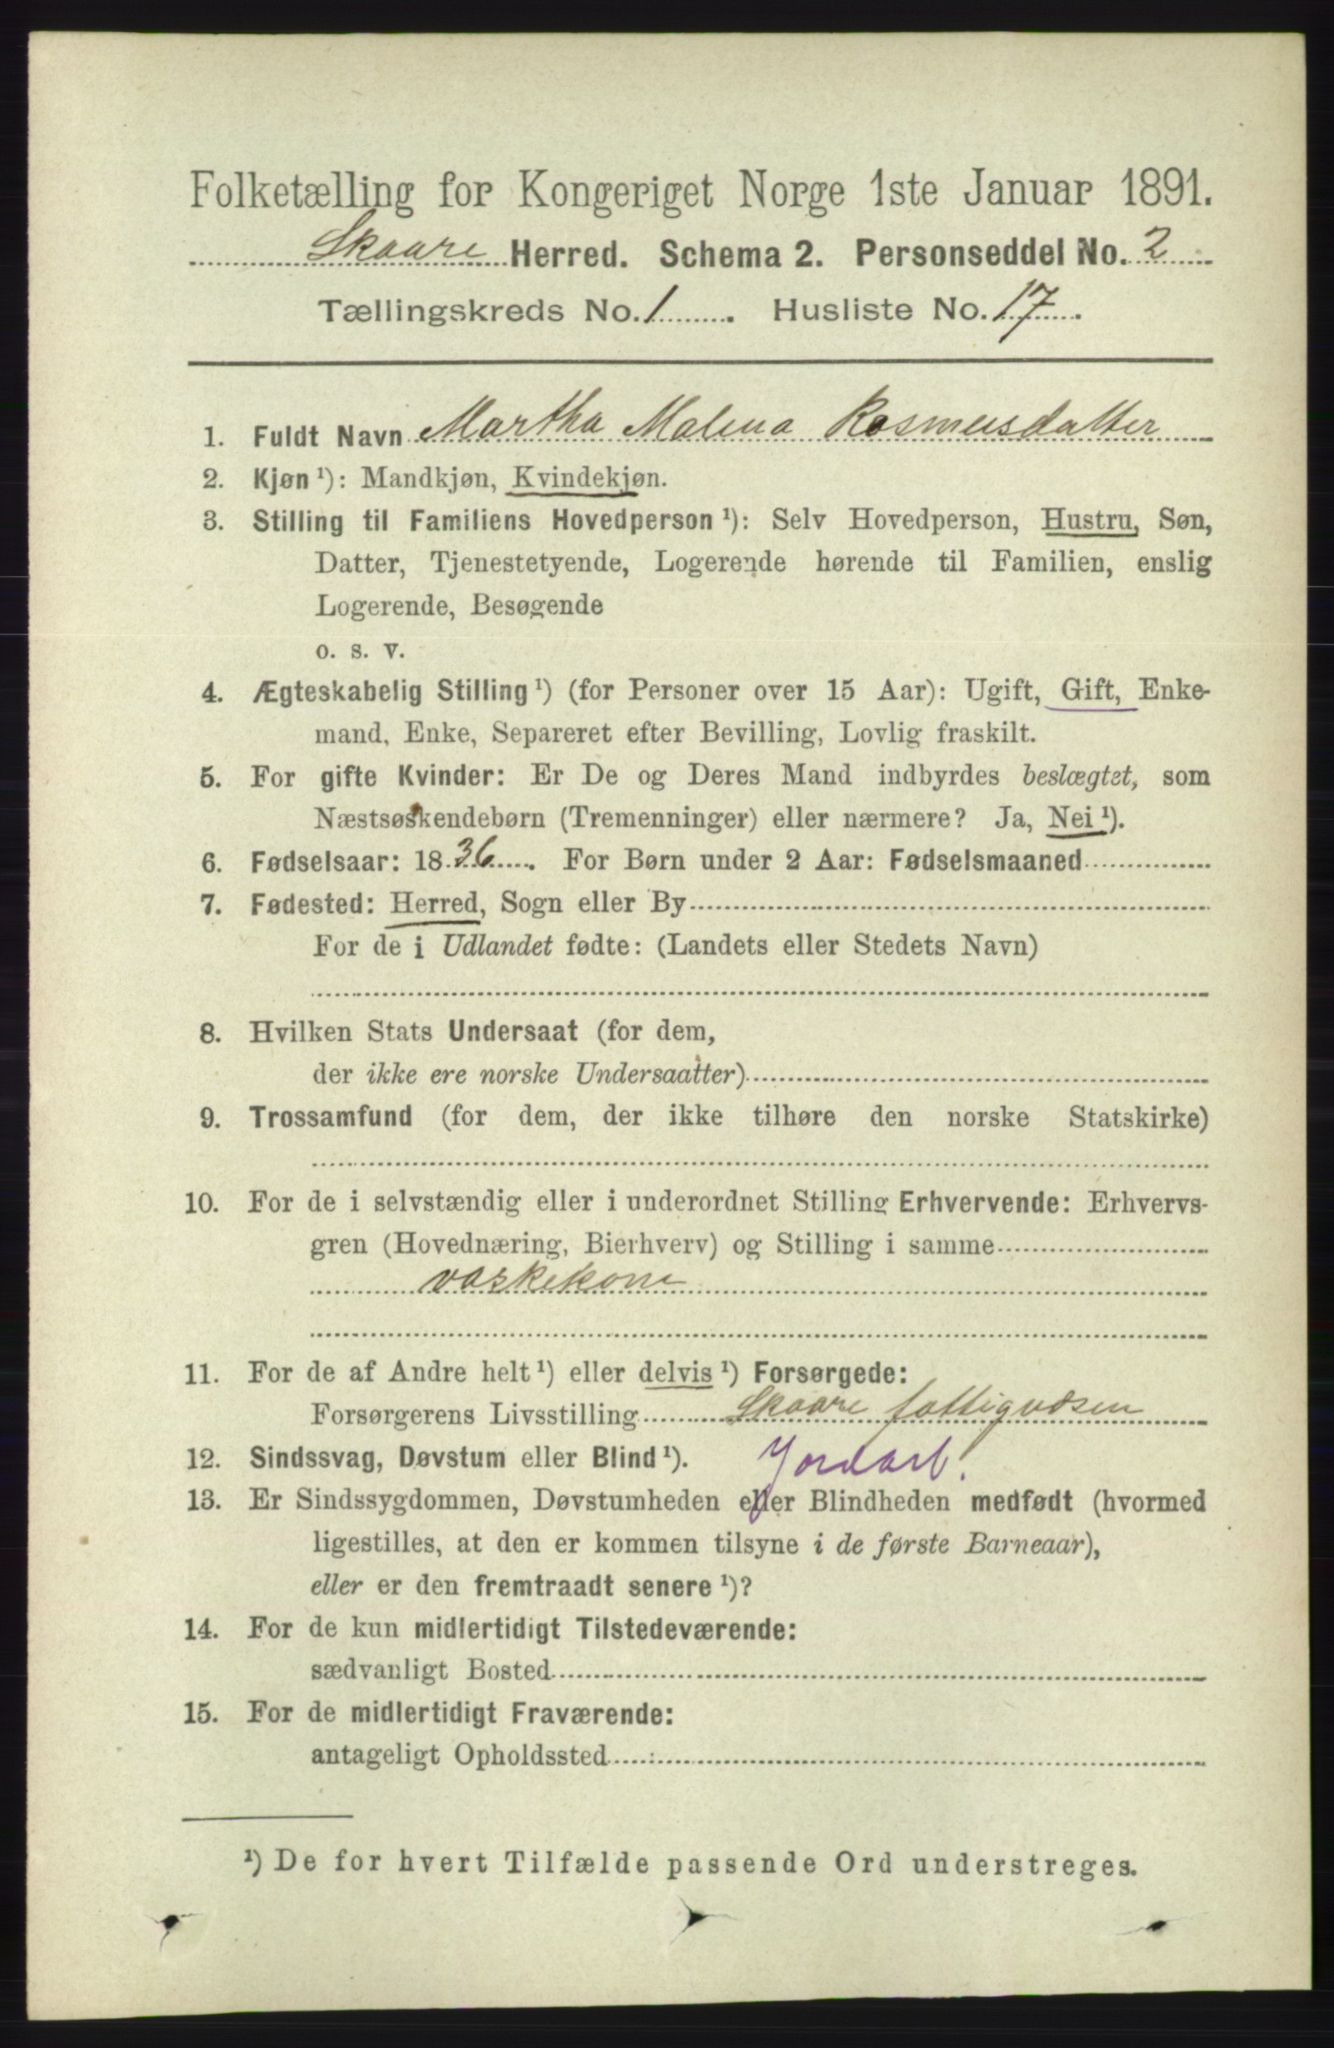 Folketælling for Kongeriget Norge 1ste Januar 1891.
Skaare Herred. Schema 2. Personseddel No. 2
Tællingskreds No. 1. Husliste No. 17.
1. Fuldt Navn Martha Malena Rasmusdatter
2. Kjøn ¹): Mandkjøn, Kvindekjøn.
3. Stilling til Familiens Hovedperson ¹): Selv Hovedperson, Hustru, Søn,
Datter, Tjenestetyende, Logerende hørende til Familien, enslig
Logerende, Besøgende
o. s. v.
4. Ægteskabelig Stilling ¹) (for Personer over 15 Aar): Ugift, Gift, Enke-
mand, Enke, Separeret efter Bevilling, Lovlig fraskilt.
5. For gifte Kvinder: Er De og Deres Mand indbyrdes beslægtet, som
Næstsøskendebørn (Tremenninger) eller nærmere? Ja, Nei ¹).
6. Fødselsaar: 1836. For Børn under 2 Aar: Fødselsmaaned
7. Fødested: Herred, Sogn eller By
For de i Udlandet fødte: (Landets eller Stedets Navn)
8. Hvilken Stats Undersaat (for dem,
der ikke ere norske Undersaatter)
9. Trossamfund (for dem, der ikke tilhøre den norske Statskirke)
10. For de i selvstændig eller i underordnet Stilling Erhvervende: Erhvervs-
gren (Hovednæring, Bierhverv) og Stilling i samme
vaskekone
11. For de af Andre helt ¹) eller delvis ¹) Forsørgede:
Forsørgerens Livsstilling Skaare fattigvæsen
12. Sindssvag, Døvstum eller Blind ¹). Jordarb.
13. Er Sindssygdommen, Døvstumheden eller Blindheden medfødt (hvormed
ligestilles, at den er kommen tilsyne i de første Barneaar),
eller er den fremtraadt senere ¹)?
14. For de kun midlertidigt Tilstedeværende:
sædvanligt Bosted
15. For de midlertidigt Fraværende:
antageligt Opholdssted
¹) De for hvert Tilfælde passende Ord understreges.